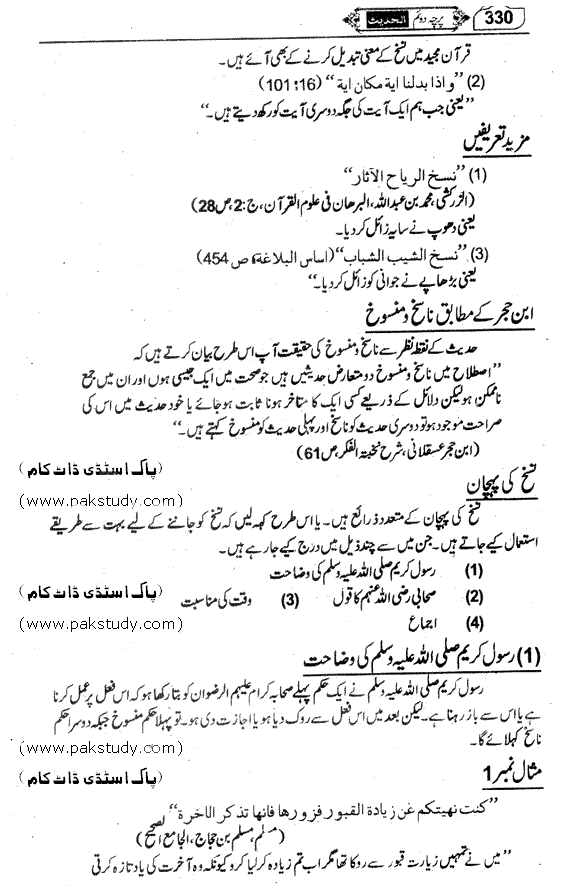 330 پرچہ دوئم الحدیث
قرآن مجید میں نسخ کے معنی تبدیل کرنے کے بھی آئے ہیں۔
(2) ”واذا بدلنا اية مكان اية“ (101:16)
”یعنی جب ہم ایک آیت کی جگہ دوسری آیت کو رکھ دیتے ہیں۔“
مزید تعریفیں
(1) ”نسخ الرياح الآثار“
(الزرکشی، محمد بن عبداللہ، البرھان فی علوم القرآن، ج:2، ص28)
یعنی دھوپ نے سایہ زائل کر دیا۔
(3) ”نسخ الشيب الشباب“ (اساس البلاغة، ص 454)
یعنی بڑھاپے نے جوانی کو زائل کر دیا۔“
ابن حجر کے مطابق ناسخ و منسوخ
حدیث کے نقطہ نظر سے ناسخ و منسوخ کی حقیقت آپ اس طرح بیان کرتے ہیں کہ
”اصطلاح میں ناسخ و منسوخ دو متعارض حدیثیں ہیں جو صحت میں ایک جیسی ہوں اور ان میں جمع
ناممکن ہو لیکن دلائل کے ذریعے کسی ایک کا متاخر ہونا ثابت ہو جائے یا خود حدیث میں اس کی
صراحت موجود ہو تو دوسری حدیث کو ناسخ اور پہلی حدیث کو منسوخ کہتے ہیں۔“
(ابن حجر عسقلانی، شرح نخبتہ الفکر، ص61)
(پاک اسٹڈی ڈاٹ کام)
نسخ کی پہچان
(www.pakstudy.com)
نسخ کی پہچان کے متعدد ذرائع ہیں۔ یا اس طرح کہہ لیں کہ نسخ کو جاننے کے لیے بہت سے طریقے
استعمال کیے جاتے ہیں۔ جن میں سے چند ذیل میں درج کیے جا رہے ہیں۔
(1) رسول کریم صلی اللہ علیہ وسلم کی وضاحت
(2) صحابی رضی اللہ عنہم کا قول (3) وقت کی مناسبت (پاک اسٹڈی ڈاٹ کام)
(4) اجماع (www.pakstudy.com)
(1) رسول کریم صلی اللہ علیہ وسلم کی وضاحت
رسول کریم صلی اللہ علیہ وسلم نے ایک حکم پہلے صحابہ کرام علیہم الرضوان کو بتا رکھا ہو کہ اس فعل پر عمل کرنا
ہے یا اس سے باز رہنا ہے۔ لیکن بعد میں اس فعل سے روک دیا ہو یا اجازت دی ہو۔ تو پہلا حکم منسوخ جبکہ دوسرا حکم
ناسخ کہلائے گا۔
(www.pakstudy.com)
مثال نمبر 1 (پاک اسٹڈی ڈاٹ کام)
”كنت نهيتكم عن زيادة القبور فزورها فانها تذكر الاخرة“
(مسلم، مسلم بن حجاج، الجامع الصحیح)
”میں نے تمہیں زیارت قبور سے روکا تھا مگر اب تم زیادہ کر لیا کرو کیونکہ وہ آخرت کی یاد تازہ کرتی